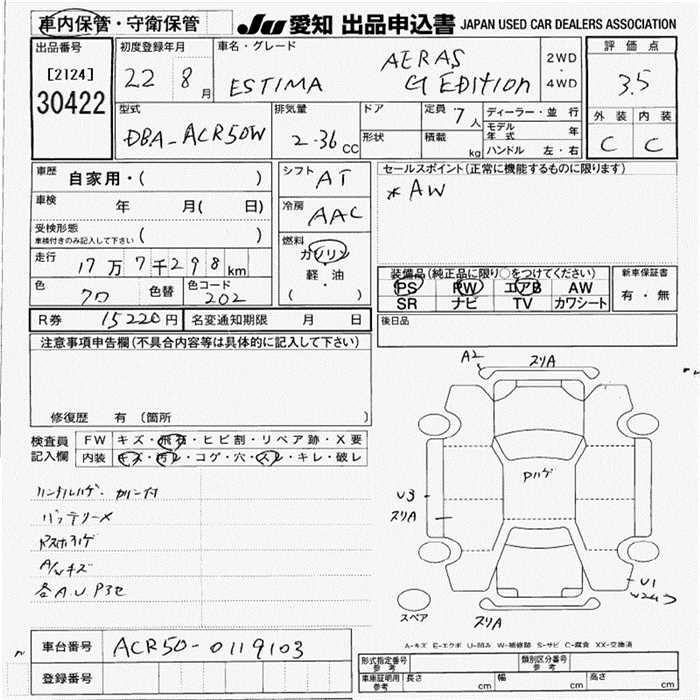 車内保管・守衛保管
JU 愛知 出品申込書 JAPAN USED CAR DEALERS ASSOCIATION
出品番号
[2124]
30422
初度登録年月
22 8月
車名・グレード
ESTIMA
AERAS
G EDITION
2WD
・
4WD
評価点
3.5
外装 内装
C C
型式
DBA-ACR50W
排気量
2.36 CC
ドア
形状
定員 7人
積載 kg
ディーラー・並行
モデル年式 年
ハンドル 左・右
車歴 自家用・( )
車検 年 月( 日)
受検形態
車検付きのみ記入して下さい ( )
走行 17万7千298km
色 クロ 色替 色コード 202
シフト AT
冷房 AAC
燃料
ガソリン
軽・油
( ・ )
セールスポイント(正常に機能するものに限ります)
*AW
装備品(純正品に限り○をつけてください)
PS PW エアB AW
SR ナビ TV カワシート
新車保証書
有・無
R券 15220円 名変通知期限 月 日
後日品
注意事項申告欄(不具合内容等は具体的に記入して下さい)
修復歴 有(箇所 )
検査員記入欄
FW キズ・飛石・ヒビ割・リペア跡・X要
内装 キズ・汚レ・コゲ・穴・スレ・キレ・破レ
ハンドルハゲ・カリン付
バッテリーメ
A/Wキズ
各A.U P3セ
A2 スリA
Pハゲ
U3
スリA
U1
スペア
スリA
A-キズ E-エクボ U-凹み W-補修跡 S-サビ C-腐食 XX-交換済
車台番号 ACR50-0119103
登録番号
型式指定番号 参考
類別区分番号 参考
車庫証明用 参考 長さ cm 幅 cm 高さ cm